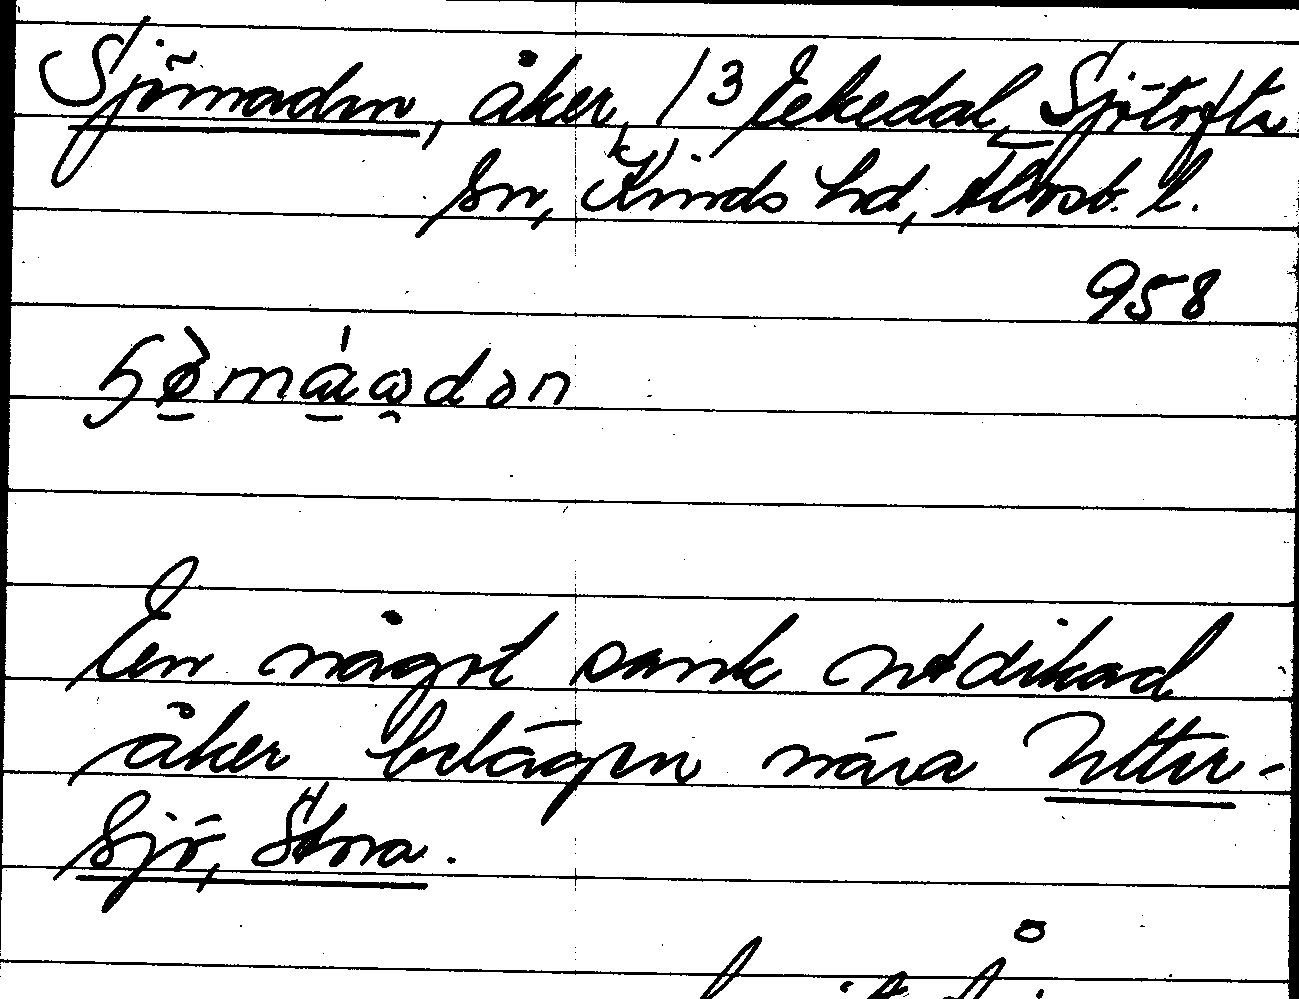 Sjömaden, åker, 13 Ekedal, Sjötofta
sn, Kinds hd, Älvsb. l.
958
En något sank utdikad
åker belägen nära Utter-
sjö, Stora.